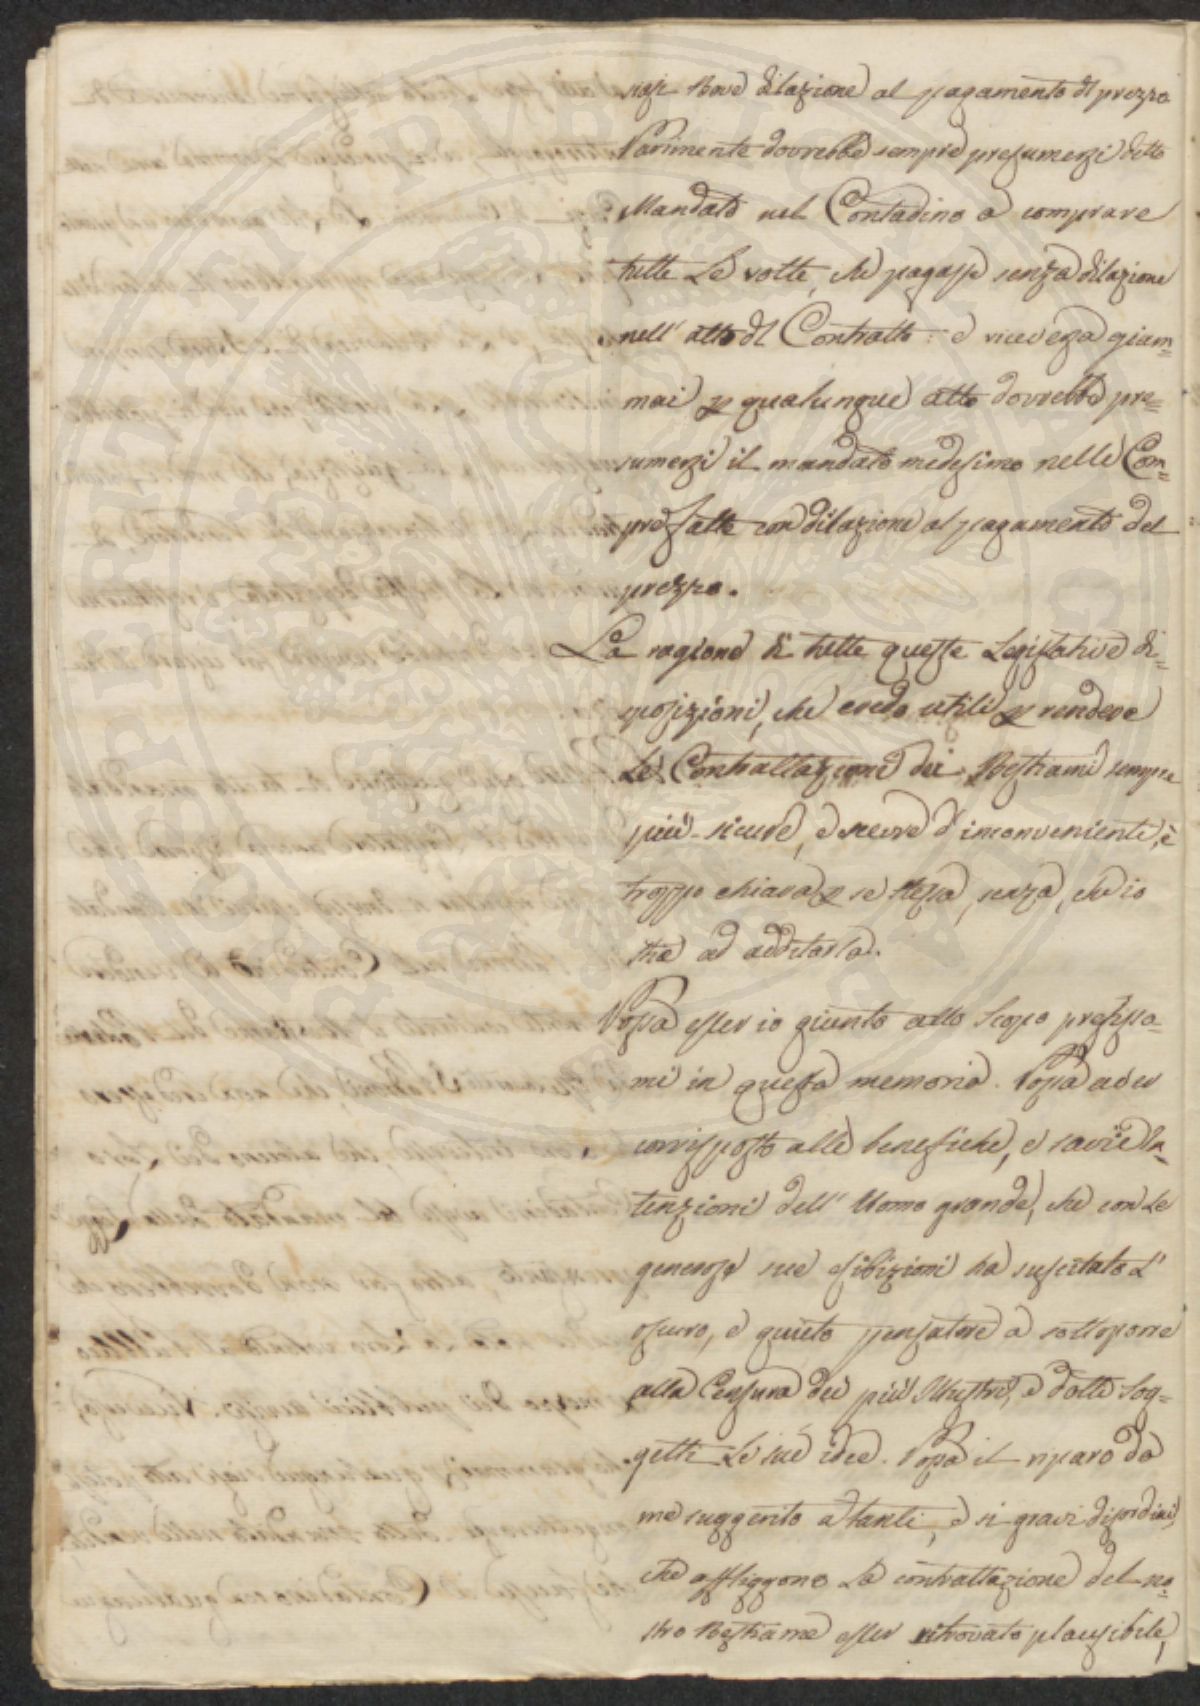 siasi breve dilazione al pagamento dl prezzo
Parimente dovrebbe sempre presumerzi detto
Mandato nel Contadino a comprare
tutte Le volte, che pagasse senza dilazione
nell' atto dl Contratto: e viceversa giam=
mai p qualunque atto dovrebbe pre=
sumerzi il mandato medesimo nelle Com=
pre fatte con dilazione al pagamento del
prezzo.
La ragione di tutte queste Legislative di=
sposizioni, che credo utili p rendere
Le Contrattazione dei Bestiami sempre
più sicure, e scevre d' inconvenienti, è
troppo chiara p se stessa, senza, che io
stia ad additarla.
Possa esser io giunto allo Scopo prefisso=
mi in questa memoria. Possa aver
corrisposto alle benefiche, e savie In=
tenzioni dell' Uomo grande, che con Le
generose sue esibizioni ha suscitato L'
oscuro, e quieto pensatore a sottoporre
alla Censura dei più Illustri, e dotti Sog=
getti Le sue idee. Possa il riparo da
me suggerito a tanti, e si gravi disordini,
che affliggono La contrattazione del no=
stro Bestiame esser ritrovato plausibile,